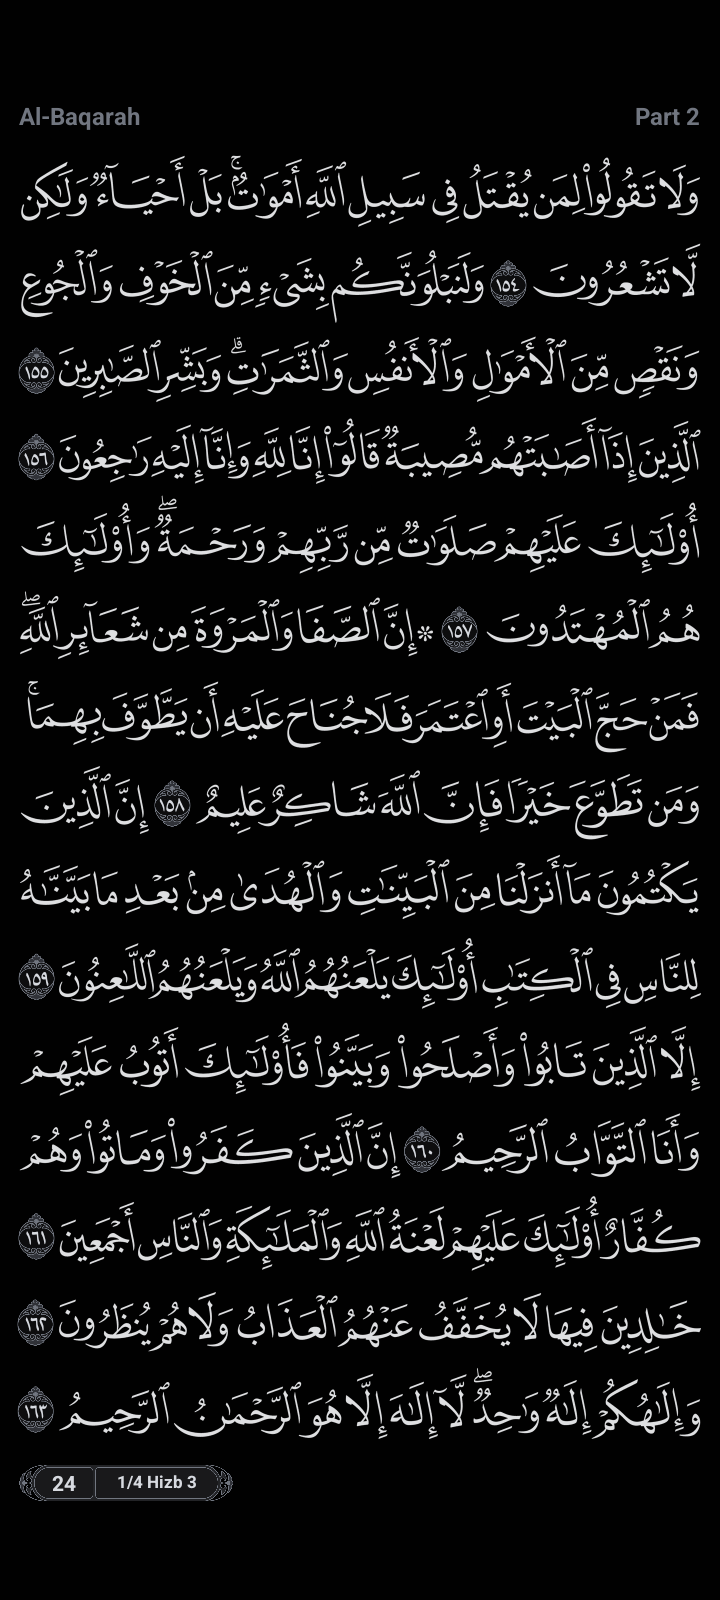 Al-Baqarah Part 2
وَلَا تَقُولُوا۟ لِمَن يُقْتَلُ فِى سَبِيلِ ٱللَّهِ أَمْوَٰتٌۢ ۚ بَلْ أَحْيَآءٌ وَلَٰكِن
لَّا تَشْعُرُونَ ١٥٤ وَلَنَبْلُوَنَّكُم بِشَىْءٍ مِّنَ ٱلْخَوْفِ وَٱلْجُوعِ
وَنَقْصٍ مِّنَ ٱلْأَمْوَٰلِ وَٱلْأَنفُسِ وَٱلثَّمَرَٰتِ ۗ وَبَشِّرِ ٱلصَّٰبِرِينَ ١٥٥
ٱلَّذِينَ إِذَآ أَصَٰبَتْهُم مُّصِيبَةٌ قَالُوٓا۟ إِنَّا لِلَّهِ وَإِنَّآ إِلَيْهِ رَٰجِعُونَ ١٥٦
أُو۟لَٰٓئِكَ عَلَيْهِمْ صَلَوَٰتٌ مِّن رَّبِّهِمْ وَرَحْمَةٌ ۖ وَأُو۟لَٰٓئِكَ
هُمُ ٱلْمُهْتَدُونَ ١٥٧ * إِنَّ ٱلصَّفَا وَٱلْمَرْوَةَ مِن شَعَآئِرِ ٱللَّهِ ۖ
فَمَنْ حَجَّ ٱلْبَيْتَ أَوِ ٱعْتَمَرَ فَلَا جُنَاحَ عَلَيْهِ أَن يَطَّوَّفَ بِهِمَا ۚ
وَمَن تَطَوَّعَ خَيْرًا فَإِنَّ ٱللَّهَ شَاكِرٌ عَلِيمٌ ١٥٨ إِنَّ ٱلَّذِينَ
يَكْتُمُونَ مَآ أَنزَلْنَا مِنَ ٱلْبَيِّنَٰتِ وَٱلْهُدَىٰ مِنۢ بَعْدِ مَا بَيَّنَّٰهُ
لِلنَّاسِ فِى ٱلْكِتَٰبِ أُو۟لَٰٓئِكَ يَلْعَنُهُمُ ٱللَّهُ وَيَلْعَنُهُمُ ٱللَّٰعِنُونَ ١٥٩
إِلَّا ٱلَّذِينَ تَابُوا۟ وَأَصْلَحُوا۟ وَبَيَّنُوا۟ فَأُو۟لَٰٓئِكَ أَتُوبُ عَلَيْهِمْ
وَأَنَا ٱلتَّوَّابُ ٱلرَّحِيمُ ١٦٠ إِنَّ ٱلَّذِينَ كَفَرُوا۟ وَمَاتُوا۟ وَهُمْ
كُفَّارٌ أُو۟لَٰٓئِكَ عَلَيْهِمْ لَعْنَةُ ٱللَّهِ وَٱلْمَلَٰٓئِكَةِ وَٱلنَّاسِ أَجْمَعِينَ ١٦١
خَٰلِدِينَ فِيهَا لَا يُخَفَّفُ عَنْهُمُ ٱلْعَذَابُ وَلَا هُمْ يُنظَرُونَ ١٦٢
وَإِلَٰهُكُمْ إِلَٰهٌ وَٰحِدٌ ۖ لَّآ إِلَٰهَ إِلَّا هُوَ ٱلرَّحْمَٰنُ ٱلرَّحِيمُ ١٦٣
24 1/4 Hizb 3